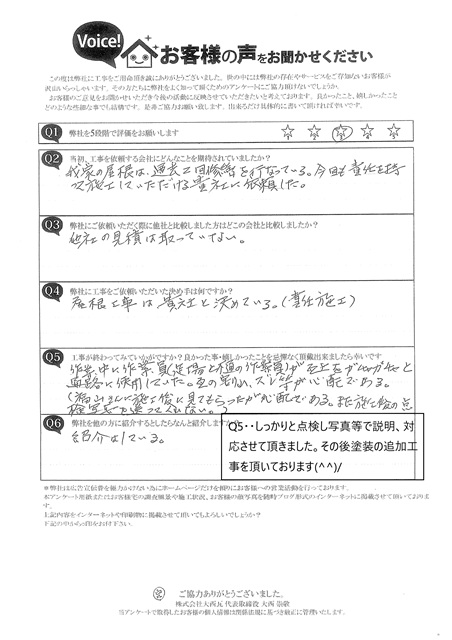 Voice!
お客様の声をお聞かせください
この度は弊社に工事をご用命頂き誠にありがとうございました。世の中には弊社の存在やサービスをご存知ないお客様が
沢山いらっしゃいます。その方たちに弊社をよく知って頂くためのアンケートにご協力頂けないでしょうか。
お客様のご意見をお聞かせいただき今後の活動に反映させていただきたいと考えております。良かったこと、嬉しかったこと
どのような些細な事でも結構です。是非ご協力お願い致します。出来るだけ具体的に書いて頂ければ幸いです。
Q1 弊社を5段階で評価をお願いします
☆ ☆ ☆ ☆ ☆
Q2 当初、工事を依頼する会社にどんなことを期待されていましたか?
我家の屋根は、過去2回修繕を行なっている。今回も責任を持
って施工していただける貴社に依頼した。
Q3 弊社にご依頼いただく際に他社と比較しました方はどこの会社と比較しましたか?
他社の見積は取っていない。
Q4 弊社に工事をご依頼いただいた決め手は何ですか?
屋根工事は貴社と決めている。(責任施工)
Q5 工事が終わってみていかがですか?良かった事・嬉しかったことを忌憚なく頂戴出来ましたら幸いです
作業中に作業員(足場と樋の作業員)が瓦上をガタガタと
通路に使用していた。瓦の割れ、ズレ等が心配である。
(福山さんに施工後に見てもらったが心配である。また施工後の点
検写真が
Q6 弊社を他の方に紹介するとしたらなんと紹介しますか?
紹介はしている。
Q5・・しっかりと点検し写真等で説明、対
応させて頂きました。その後塗装の追加工
事を頂いております(^^)/
※弊社は広告宣伝費を極力かけない為にホームページだけを頼りにお客様への営業活動を行っております。
本アンケート用紙またはお客様宅の調査風景や施工状況、お客様の顔写真を随時ブログ形式のインターネットに掲載させて頂いております。
上記内容をインターネットや印刷物に掲載させて頂いてもよろしいでしょうか?
下記の中から○印をお付下さい。
ご協力ありがとうございました。
株式会社大西瓦 代表取締役 大西 崇敬
当アンケートで取得したお客様の個人情報は関係法規に基づき厳正に管理いたします。